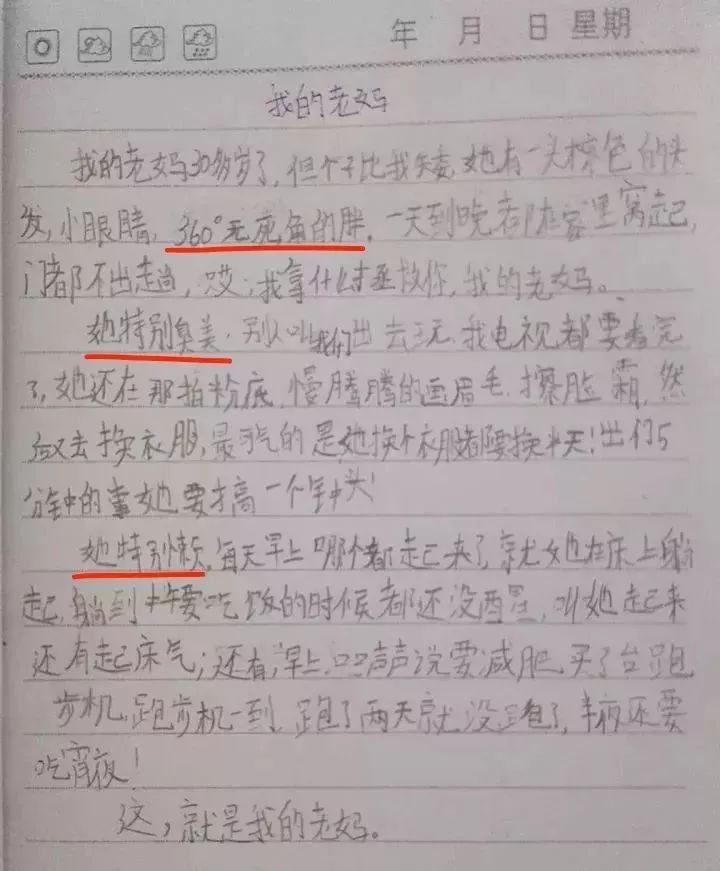 年 月 日 星期
我的老妈
我的老妈30多岁了,但个子比我矮,她有一头棕色的头
发,小眼睛,360°无死角的胖,一天到晚都在客里窝起,
门都不出趟,哎,我拿什么拯救你,我的老妈。
她特别臭美,别人叫我们出去玩,我电视都要看完
了,她还在那拍粉底,慢腾腾的画眉毛,擦脸霜,然
后又去换衣服,最可气的是她换个衣服都要换半天!出们5
分钟的事她要搞一个钟头!
她特别懒,每天早上哪个都起来了,就她在床上躺
起,躺到中午要吃饭的时候都还没酉星,叫她起来
还有起床气;还有,早上口口声声说要减肥,买了台跑
步机,跑步机一到,跑了两天就没跑了,半夜还要
吃宵夜!
这,就是我的老妈。